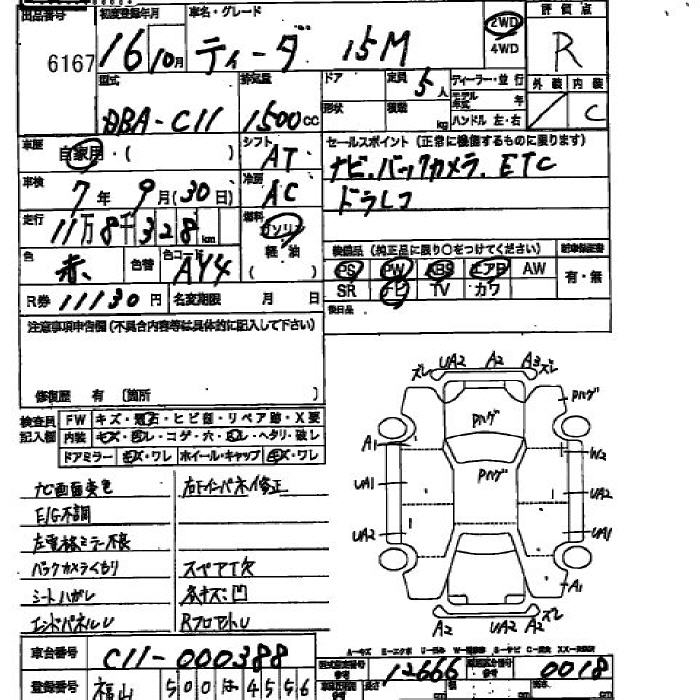 出品番号 初度登録年月 車名・グレード 2WD 評価点
6167 16 10月 ティーダ 15M 4WD R
型式 排気量 ドア 定員 5人 ディーラー・並行 外装 内装
DBA-C11 1500cc 形状 積載 kg モデル年式 年 C
ハンドル 左・右
車歴 自家用・( ) シフト AT セールスポイント(正常に機能するものに限ります)
車検 7年 9月(30日) 冷房 AC ナビ.バックカメラ.ETC
走行 11万8千328km 燃料 ガソリン ドラレコ
軽油
色 赤 色替 色コード AY4 装備品(純正品に限り○をつけてください)
PS PW ABS エアB AW 有・無
R券 11130円 名変期限 月 日 SR ナビ TV カワ
後日品
注意事項申告欄(不具合内容等は具体的に記入して下さい)
修復歴 有(箇所 )
検査員記入欄 FW キズ・飛石・ヒビ割・リペア跡・X要
内装 キズ・汚レ・コゲ・穴・スレ・ヘタリ・破レ
ドアミラー キズ・ワレ ホイール・キャップ キズ・ワレ
ナビ画面変色 右Fインパネイ修正
E/G不調
左電格ミラー不良
バックカメラくもり スペアT欠
シートハガレ 各キズ凹
エンドパネルU RフロアトU
ズレ UA2 A2 A3 ズレ
Pハゲ
Pハゲ
Pハゲ
A1 W2
UA1 UA2
UA2 UA1
A1
A2 UA2 A2 ズレ
車台番号 C11-000388
12666 0018
登録番号 福山 500 は 4556